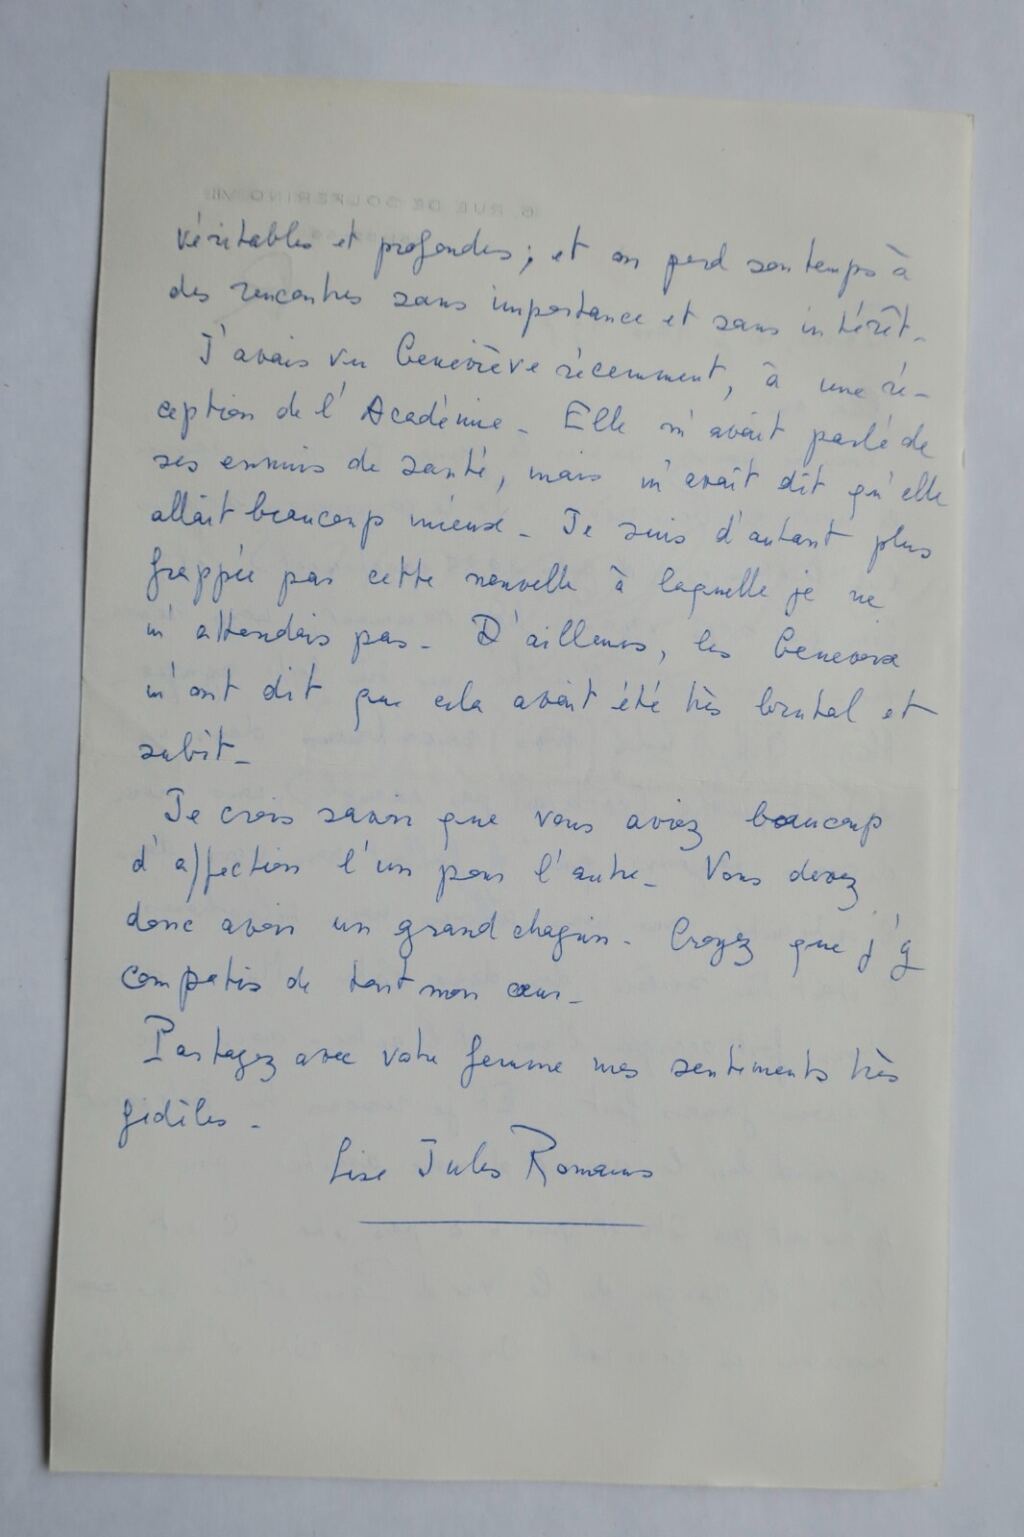 6, RUE DE SOLFERINO VII
véritables et profondes ; et on perd son temps à
des rencontres sans importance et sans intérêt -
J'avais vu Geneviève récemment, à une ré-
ception de l'Académie - Elle m'avait parlé de
ses ennuis de santé, mais m'avait dit qu'elle
allait beaucoup mieux - Je suis d'autant plus
frappée par cette nouvelle à laquelle je ne
m'attendais pas - D'ailleurs, les Genevoix
m'ont dit que cela avait été très brutal et
subit -
Je crois savoir que vous aviez beaucoup
d'affection l'un pour l'autre - Vous devez
donc avoir un grand chagrin - Croyez que j'y
compatis de tout mon cœur -
Partagez avec votre femme mes sentiments très
fidèles -
Lise Jules Romains